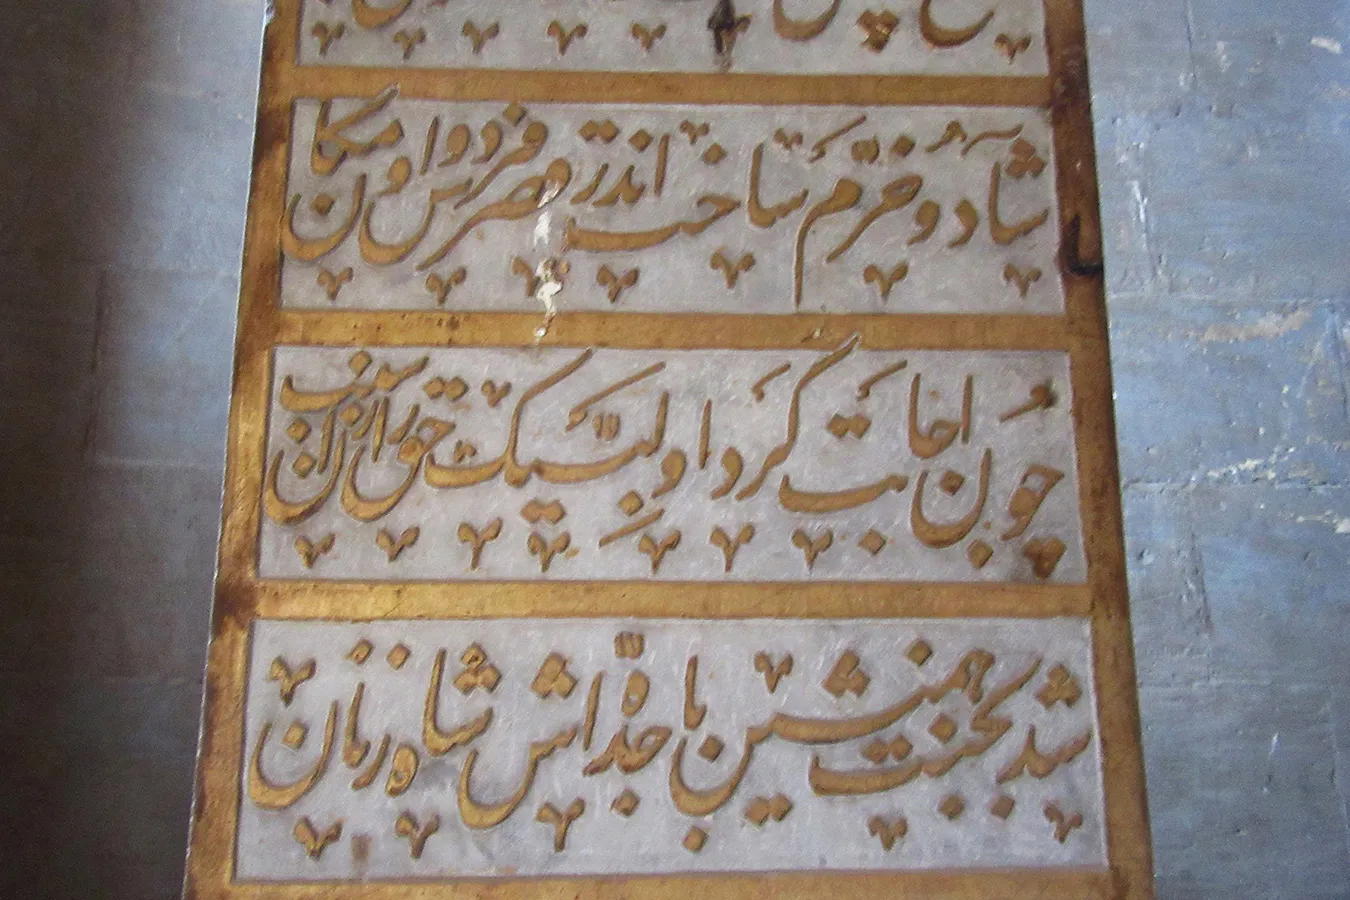 شاد و خرّم ساخت اندر قصر فردوس او مکان
چون اجابت کرد او لبّیک حق
شد بجنت همنشین با جدّه اش شاه زنان